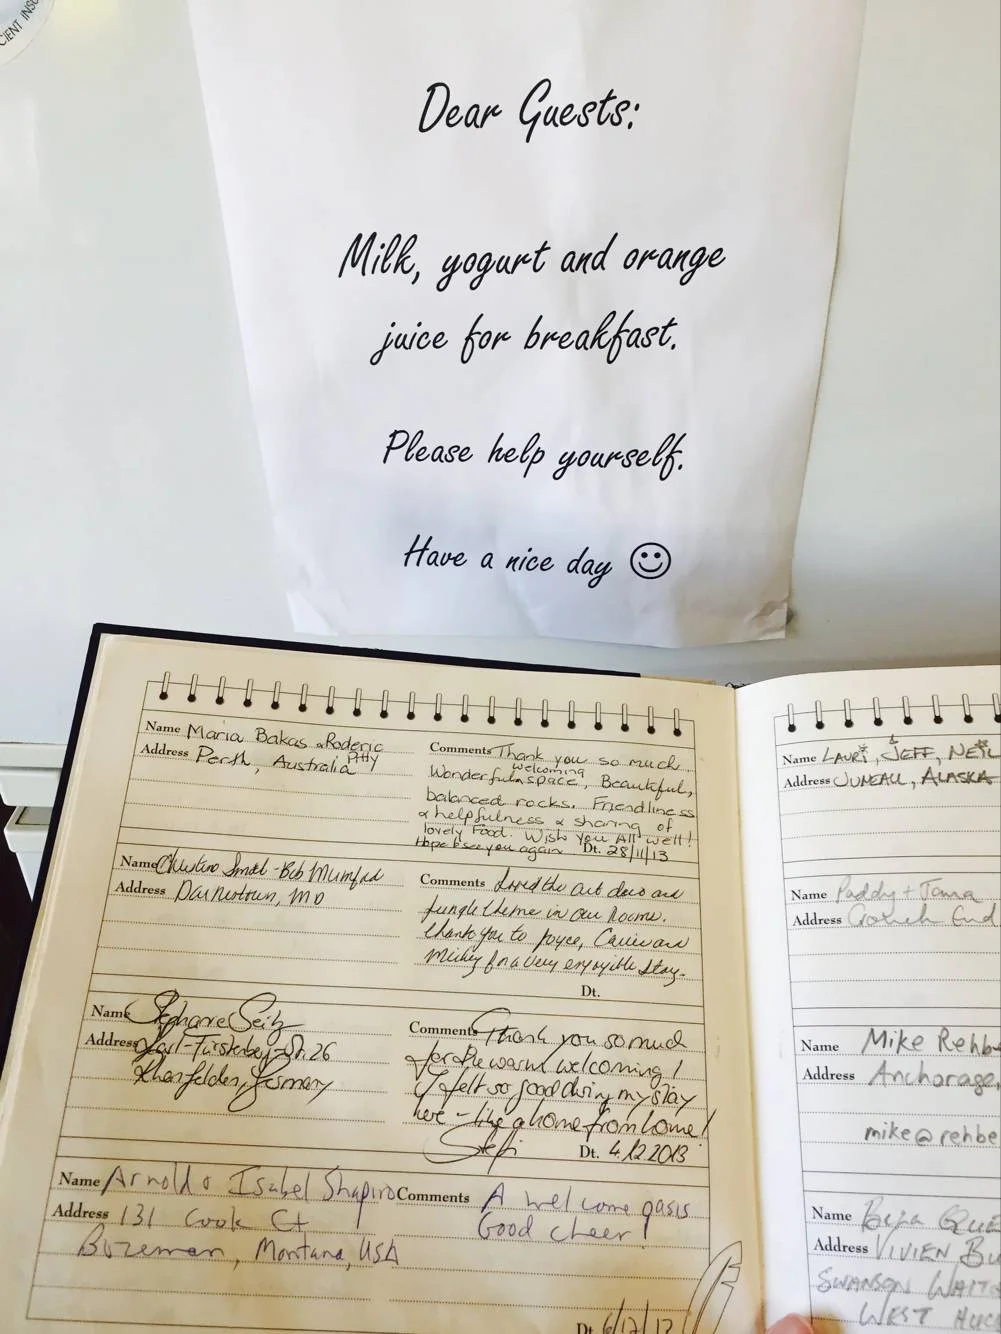 CIENT INSU
Dear Guests:
Milk, yogurt and orange
juice for breakfast.
Please help yourself.
Have a nice day ☺
Name Maria Bakas & Roderic
Pitty
Address Perth, Australia
Comments Thank you so much.
welcoming
Wonderful space, Beautiful,
balanced rocks. Friendliness
& helpfulness & sharing of
lovely Food. Wish You All well!
Hope to see you again. Dt. 28/11/13
Name Smith - Bob Mumford
Address Darnestown, MD
Comments Loved the art deco and
jungle theme in our rooms.
Thank you to Joyce, and
Mickey for a very enjoyable stay.
Dt.
Name Stephanie Seitz
Address Karl-Fürstenberg-Str. 26
Rheinfelden, Germany
Comments Thank you so much
for the warm welcoming!
I felt so good during my stay
here - like a home from home!
Steffi Dt. 4.12.2013
Name Arnold & Isabel Shapiro
Address 131 Cook Ct
Bozeman, Montana, USA
Comments A welcome oasis
Good cheer!
Dt. 6/12/13
Name LAURI, JEFF, NEIL
Address JUNEAU, ALASKA
Name Paddy + Tama
Address
Name Mike Rehb
Address Anchorage,
mike@rehbe
Name
Address VIVIEN BU
SWANSON WAITA
WEST